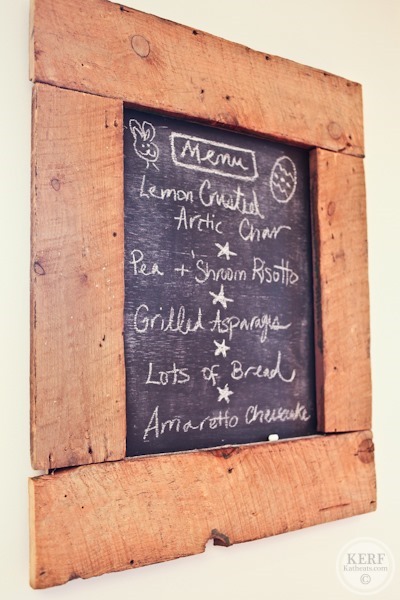 Menu
Lemon Crusted
Arctic Char
Pea + Shroom Risotto
Grilled Asparagus
Lots of Bread
Amaretto Cheesecake
KERF
Katheats.com
©